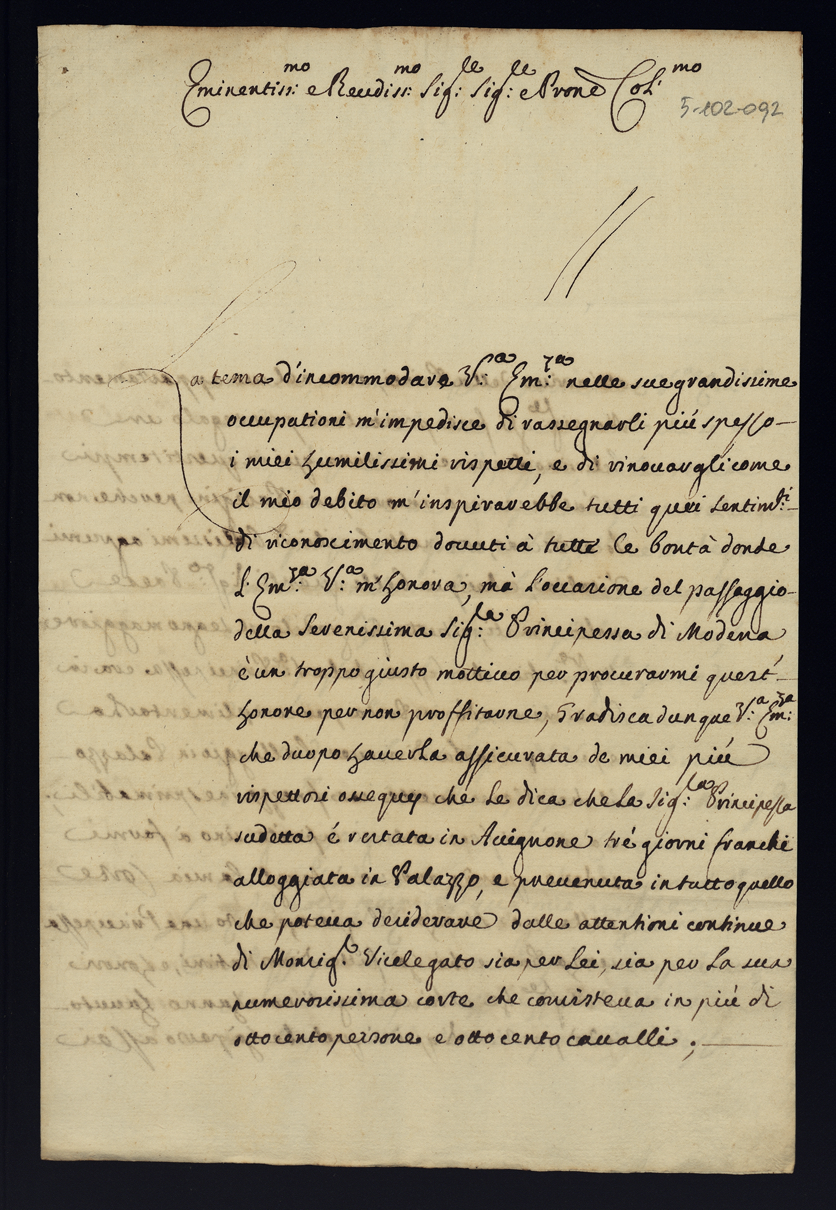 Eminentiss:mo e Reudiss:mo Sig:re Sig:re e Prone Col:mo
5-102-092
La tema d'incommodare V:ra Em:za nelle sue grandissime
occupationi m'impedisce di rassegnarli piú spesso
i miei humilissimi rispetti, e di rinouargli come
il mio debito m'inspirarebbe tutti quei sentim:ti
di riconoscimento douuti à tutte le bontà donde
l'Em:za V:ra m'honora, mà l'occazione del passaggio
della Serenissima Sig:ra Principessa di Modena
è un troppo giusto mottiuo per procurarmi quest'
honore per non proffitarne, Gradisca dunque V:ra Em:za
che duopo hauerla assicurata de miei piú
rispettosi ossequij che le dica che la Sig:ra Principessa
sudetta é restata in Auignone tré giorni franchi
alloggiata in Palazzo, e preuenuta in tutto quello
che poteua desiderare dalle attentioni continue
di Monsig.r Vicelegato sia per Lei, sia per la sua
numerosissima corte che consisteua in piú di
otto cento persone e otto cento caualli;